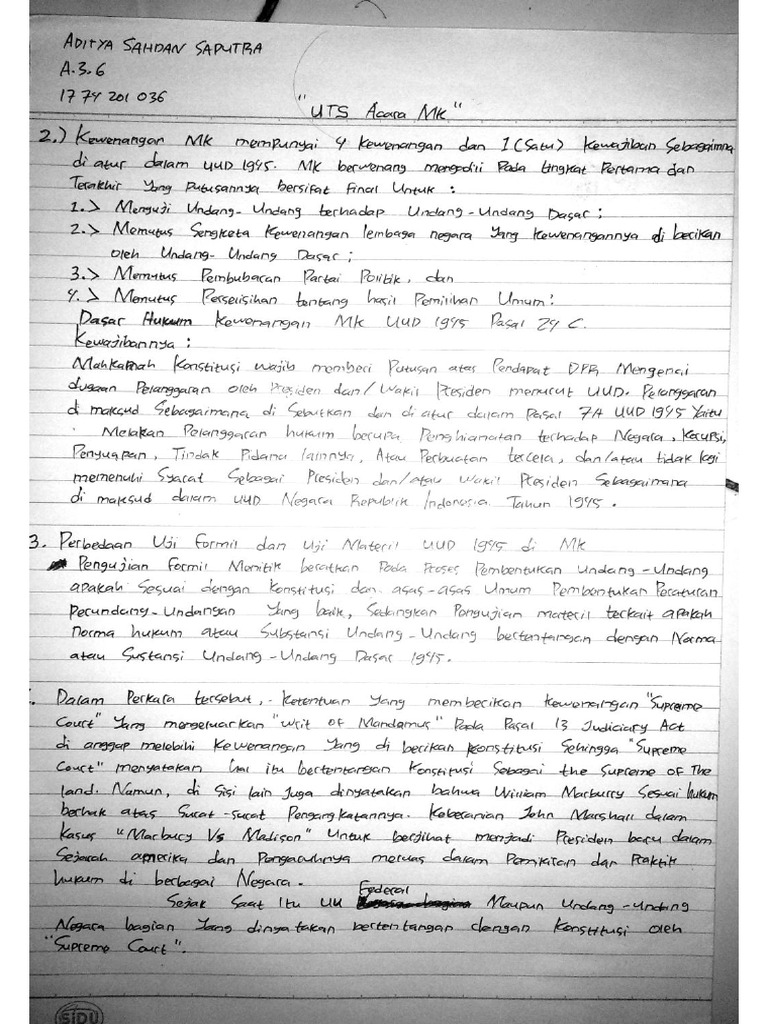 ADITYA SAHDAN SAPUTRA
A.3.6
1774 201 036
"UTS Acara MK"
2.) Kewenangan MK mempunyai 4 Kewenangan dan 1 (Satu) Kewajiban Sebagaimna
di atur dalam UUD 1945. MK berwenang mengadili Pada tingkat Pertama dan
Terakhir Yang Putusannya bersifat final Untuk :
1.> Menguji Undang-Undang terhadap Undang-Undang Dasar ;
2.> Memutus Sengketa Kewenangan lembaga negara Yang Kewenangannya di berikan
oleh Undang-Undang Dasar ;
3.> Memutus Pembubaran Partai Politik, dan
4.> Memutus Perselisihan tentang hasil Pemilihan Umum :
Dasar Hukum Kewenangan MK UUD 1945 Pasal 24 C.
Kewajibannya :
Mahkamah Konstitusi wajib memberi Putusan atas Pendapat DPR Mengenai
dugaan Pelanggaran oleh Presiden dan/Wakil Presiden menurut UUD. Pelanggaran
di maksud Sebagaimana di Sebutkan dan di atur dalam Pasal 7A UUD 1945 Yaitu
Melakan Pelanggaran hukum berupa Penghiamatan terhadap Negara, Korupsi,
Penyuapan, Tindak Pidana lainnya, Atau Perbuatan tercela, dan/atau tidak lagi
memenuhi Syarat Sebagai Presiden dan/atau Wakil Presiden Sebagaimana
di maksud dalam UUD Negara Republik Indonesia Tahun 1945.
3. Perbedaan Uji Formil dan Uji Materil UUD 1945 di MK
Pengujian Formil Menitik beratkan Pada Proses Pembentukan Undang-Undang
apakah Sesuai dengan Konstitusi dan asas-asas Umum Pembentukan Peraturan
perundang-Undangan Yang baik, Sedangkan Pengujian materil terkait apakah
norma hukum atau Substansi Undang-Undang bertentangan dengan Norma
atau Sustansi Undang-Undang Dasar 1945.
Dalam Perkara tersebut, Ketentuan Yang memberikan kewenangan "Supreme
Court" Yang mengeluarkan "Writ of Mandamus" Pada Pasal 13 Judiciary Act
di anggap melebihi Kewenangan Yang di berikan Konstitusi Sehingga "Supreme
Court" menyatakan hal itu bertentangan Konstitusi Sebagai the Supreme of The
land. Namun, di Sisi lain Juga dinyatakan bahwa William Marburry Sesuai hukum
berhak atas Surat-surat Pengangkatannya. Keberanian John Marshall dalam
Kasus "Marbury Vs Madison" Untuk berjihat menjadi Presiden baru dalam
Sejarah amerika dan Pengaruhnya meruas dalam Pemikiran dan Praktik
hukum di berbagai Negara.
Sejak Saat Itu UU Federal Maupun Undang-Undang
Negara bagian Yang dinyatakan bertentangan dengan Konstitusi oleh
"Supreme Court".
SiDU